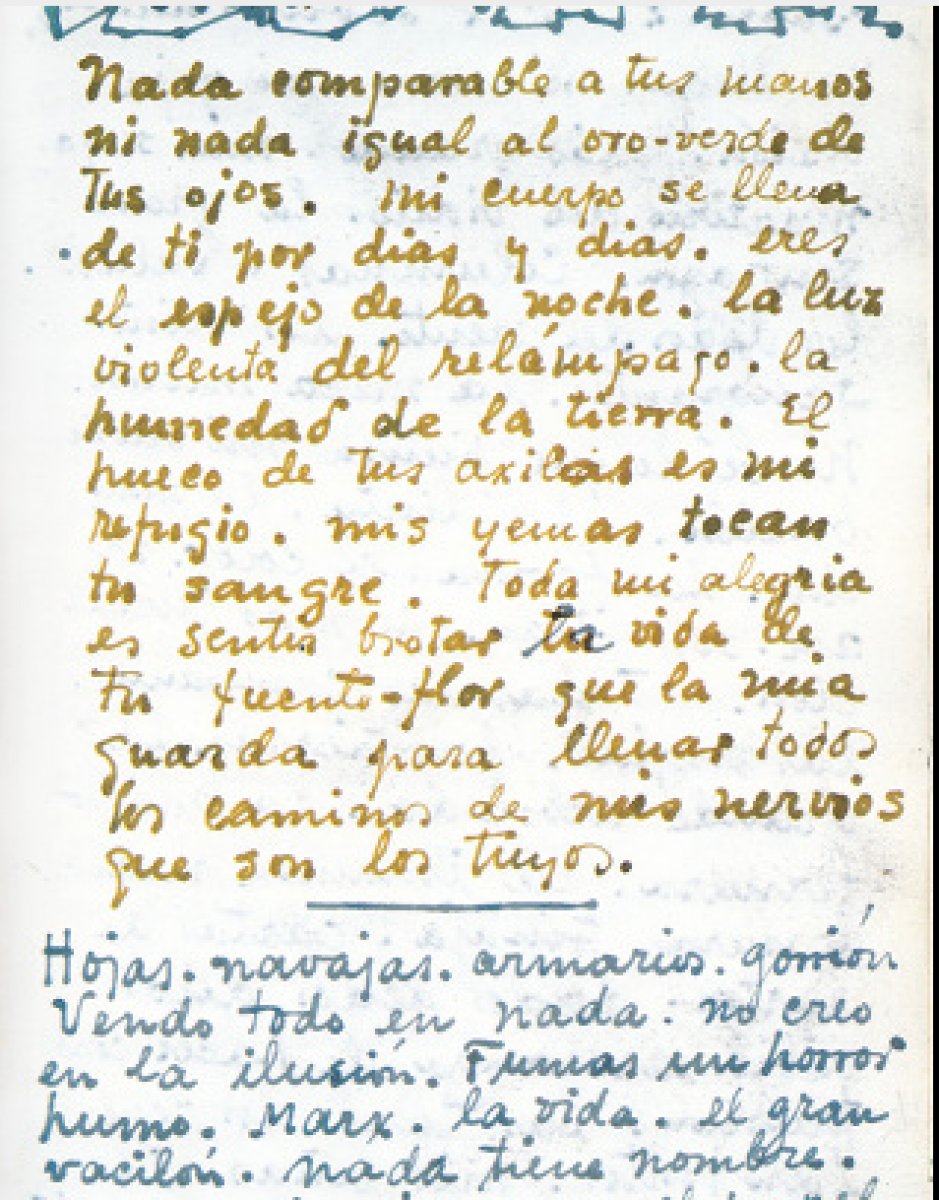 Nada comparable a tus manos
ni nada igual al oro-verde de
Tus ojos. mi cuerpo se llena
de ti por dias y dias. eres
el espejo de la noche. la luz
violenta del relámpago. la
humedad de la tierra. El
hueco de tus axilas es mi
refugio. mis yemas tocan
tu sangre. Toda mi alegria
es sentir brotar la vida de
tu fuente-flor que la mia
guarda para llenar todos
los caminos de mis nervios
que son los tuyos.
Hojas. navajas. armarios. gorrión
Vendo todo en nada. no creo
en la ilusión. Fumas un horror
humo. Marx. la vida. el gran
vacilón. nada tiene nombre.